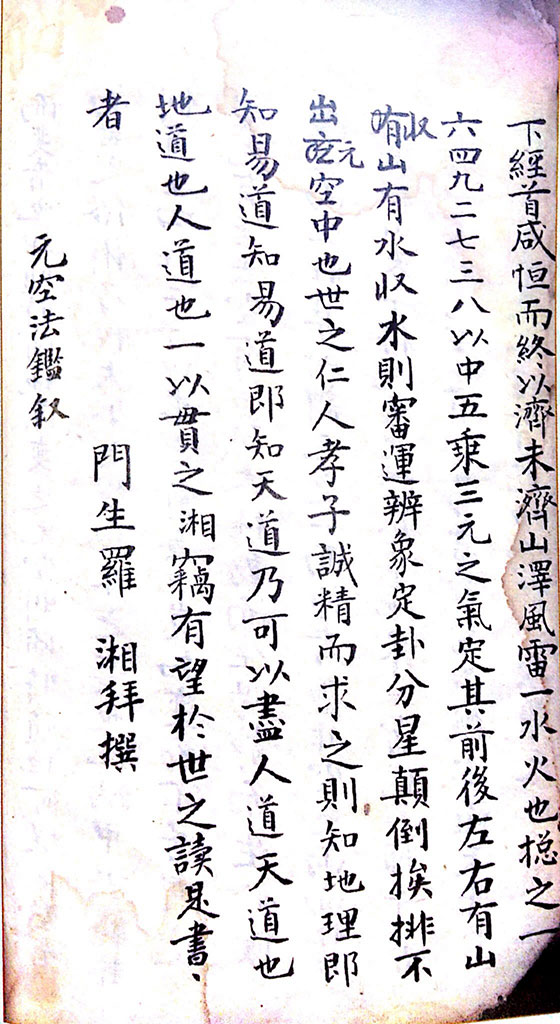 下經首咸恒而終以濟未濟山澤風雷一水火也搃之一
六四九二七三八以中五乘三元之氣定其前後左右有山
收山有水收水則審運辨象定卦分星顛倒挨排不
出元空中也世之仁人孝子誠精而求之則知地理即
知易道知易道即知天道乃可以盡人道天道也
地道也人道也一以貫之湘竊有望於世之讀是書、
者
元空法鑑叙
門生羅湘拜撰